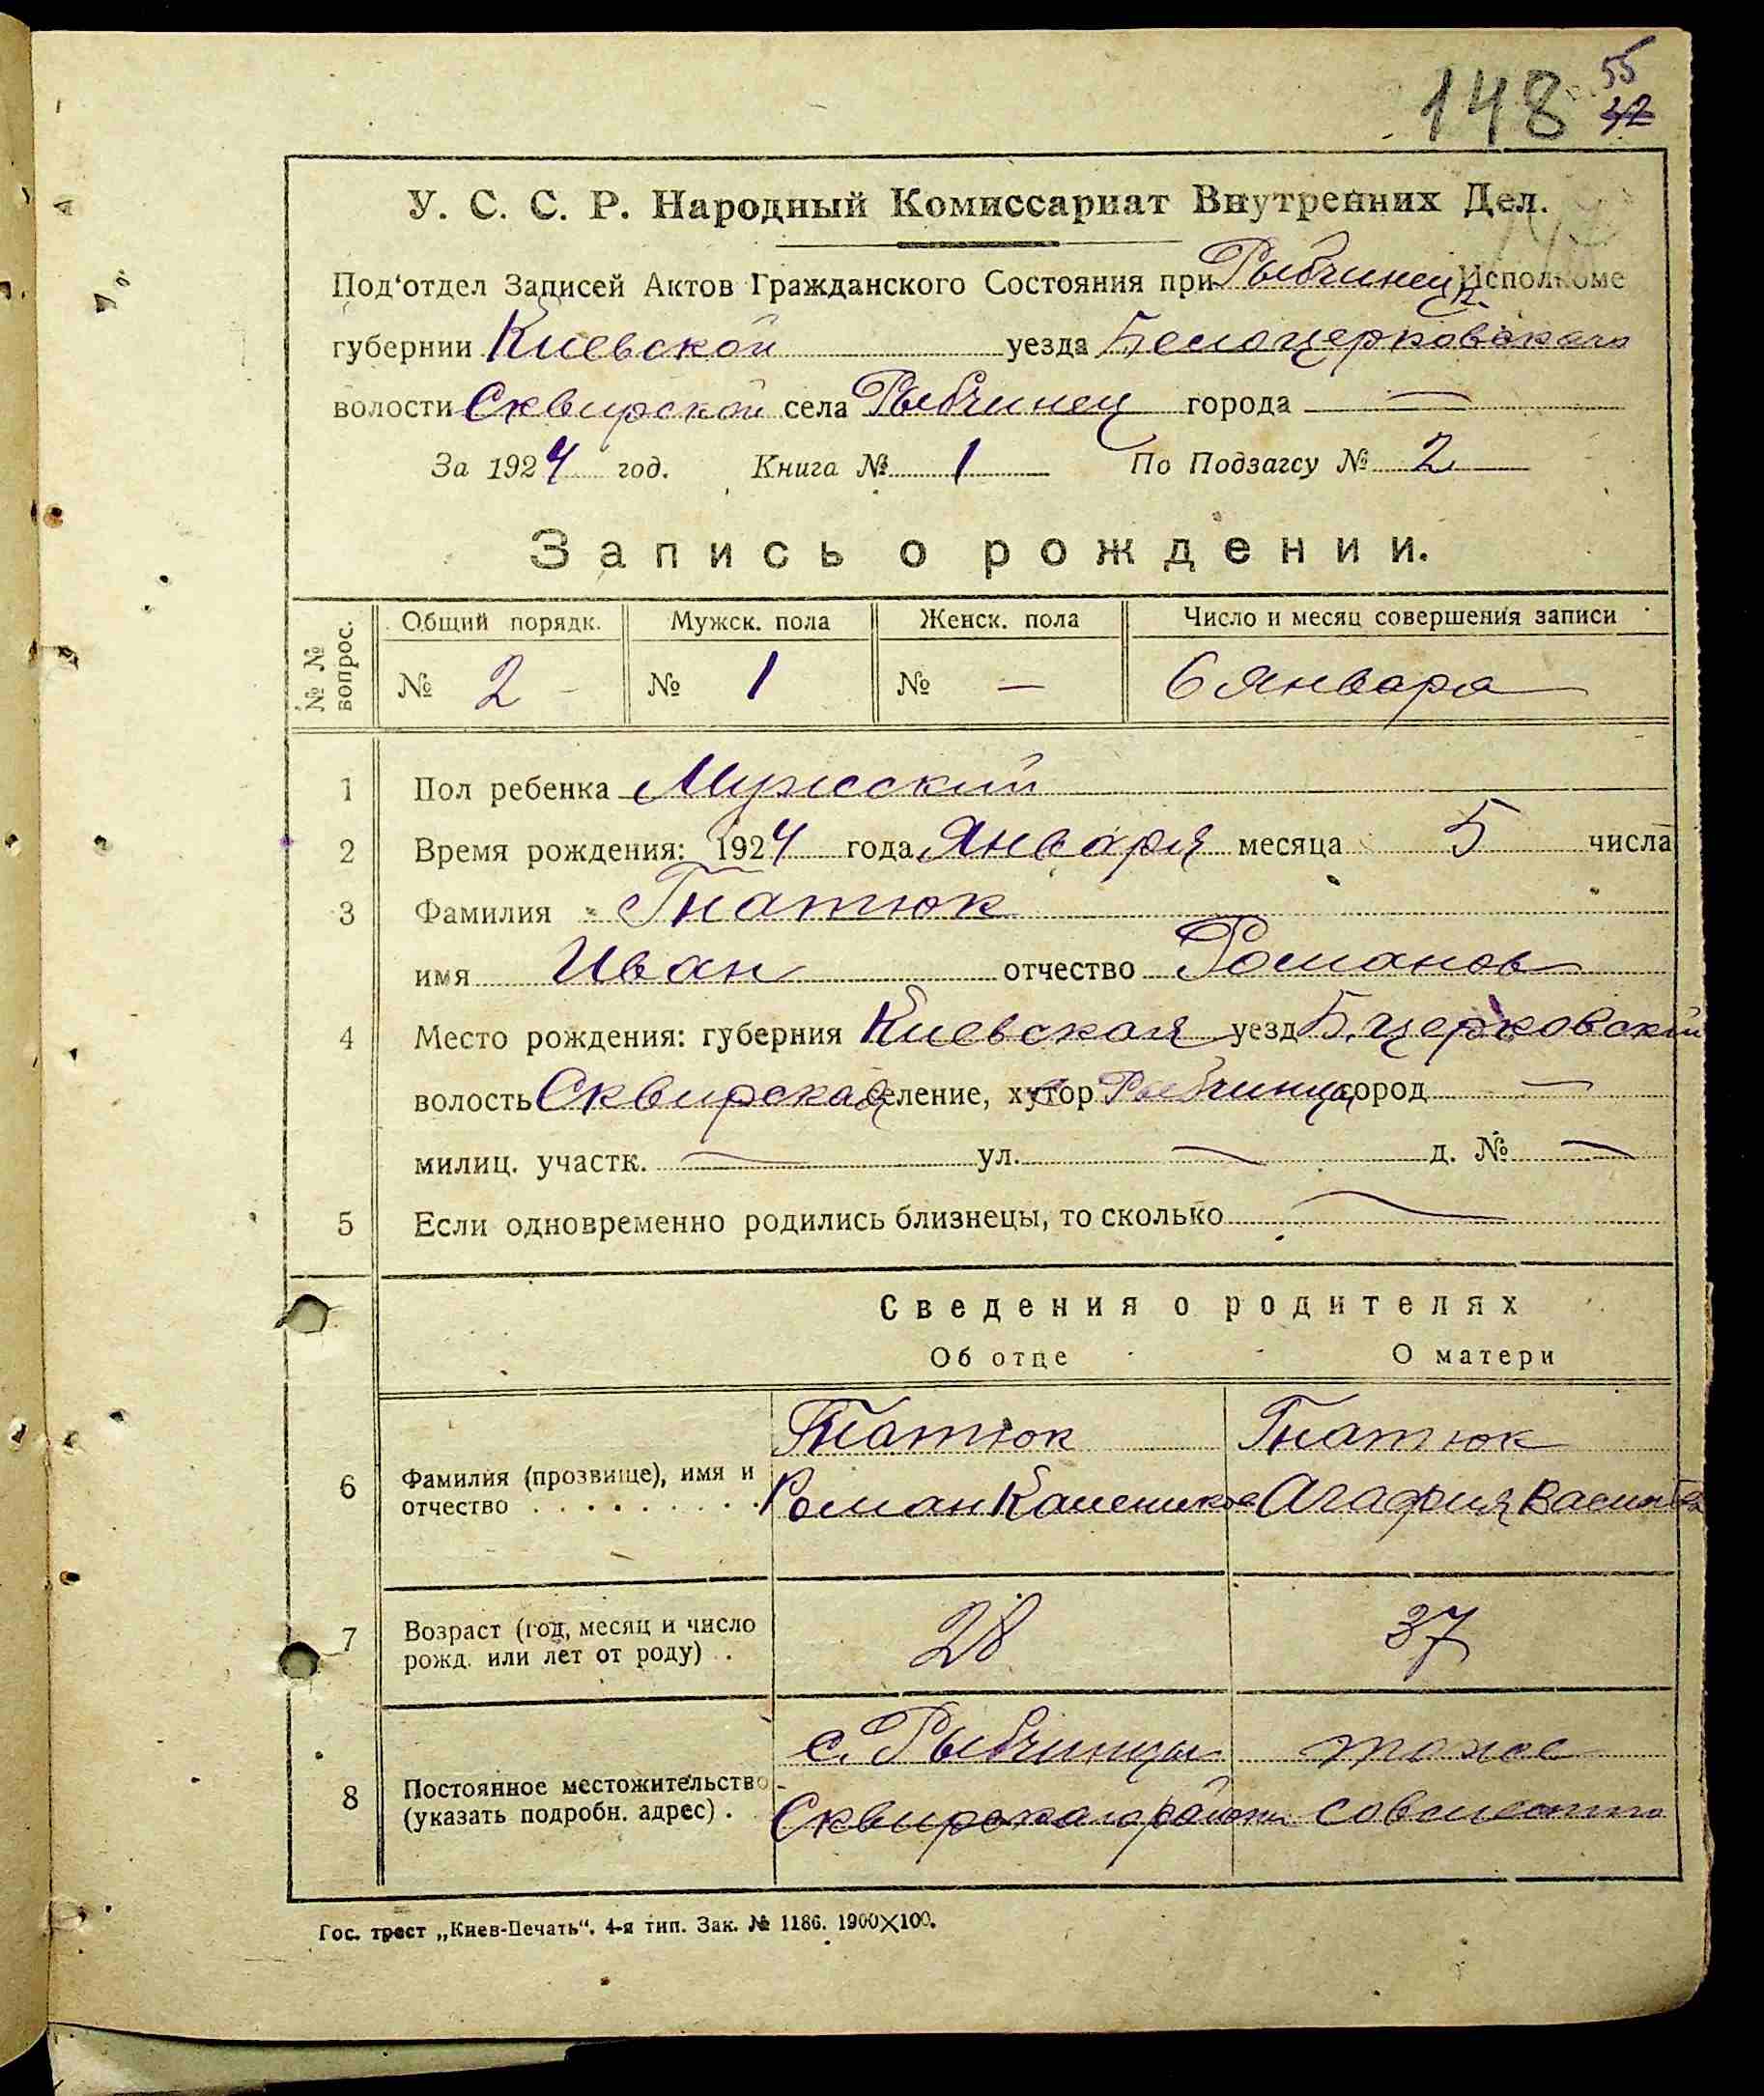 148 55
42
У. С. С. Р. Народный Комиссариат Внутренних Дел.
Под‘отдел Записей Актов Гражданского Состояния при Рыбчинец. Исполкоме
губернии Киевской уезда Белоцерковского
волости Сквирской села Рыбчинец города —
За 1924 год. Книга № 1 По Подзагсу № 2
Запись о рождении.
№ № вопрос. Общий порядк. Мужск. пола Женск. пола Число и месяц совершения записи
№ 2 № 1 № — 6 Января
1 Пол ребенка Мужской
2 Время рождения: 1924 года Января месяца 5 числа
3 Фамилия Гнатюк
имя Иван отчество Романов
4 Место рождения: губерния Киевская уезд Б. церковский
волость Сквирская селение, хутор Рыбчинцы город —
милиц. участк. — ул. — д. № —
5 Если одновременно родились близнецы, то сколько —
Сведения о родителях
Об отце О матери
Гнатюк Гнатюк
6 Фамилия (прозвище), имя и
отчество . . . . . . . . . Роман Агафия
7 Возраст (год, месяц и число
рожд. или лет от роду) . . 28 37
с. Рыбчинцы тоже
8 Постоянное местожительство
(указать подробн. адрес) . Сквирского района совместно
Гос. трест „Киев-Печать“. 4-я тип. Зак. № 1186. 1900×100.